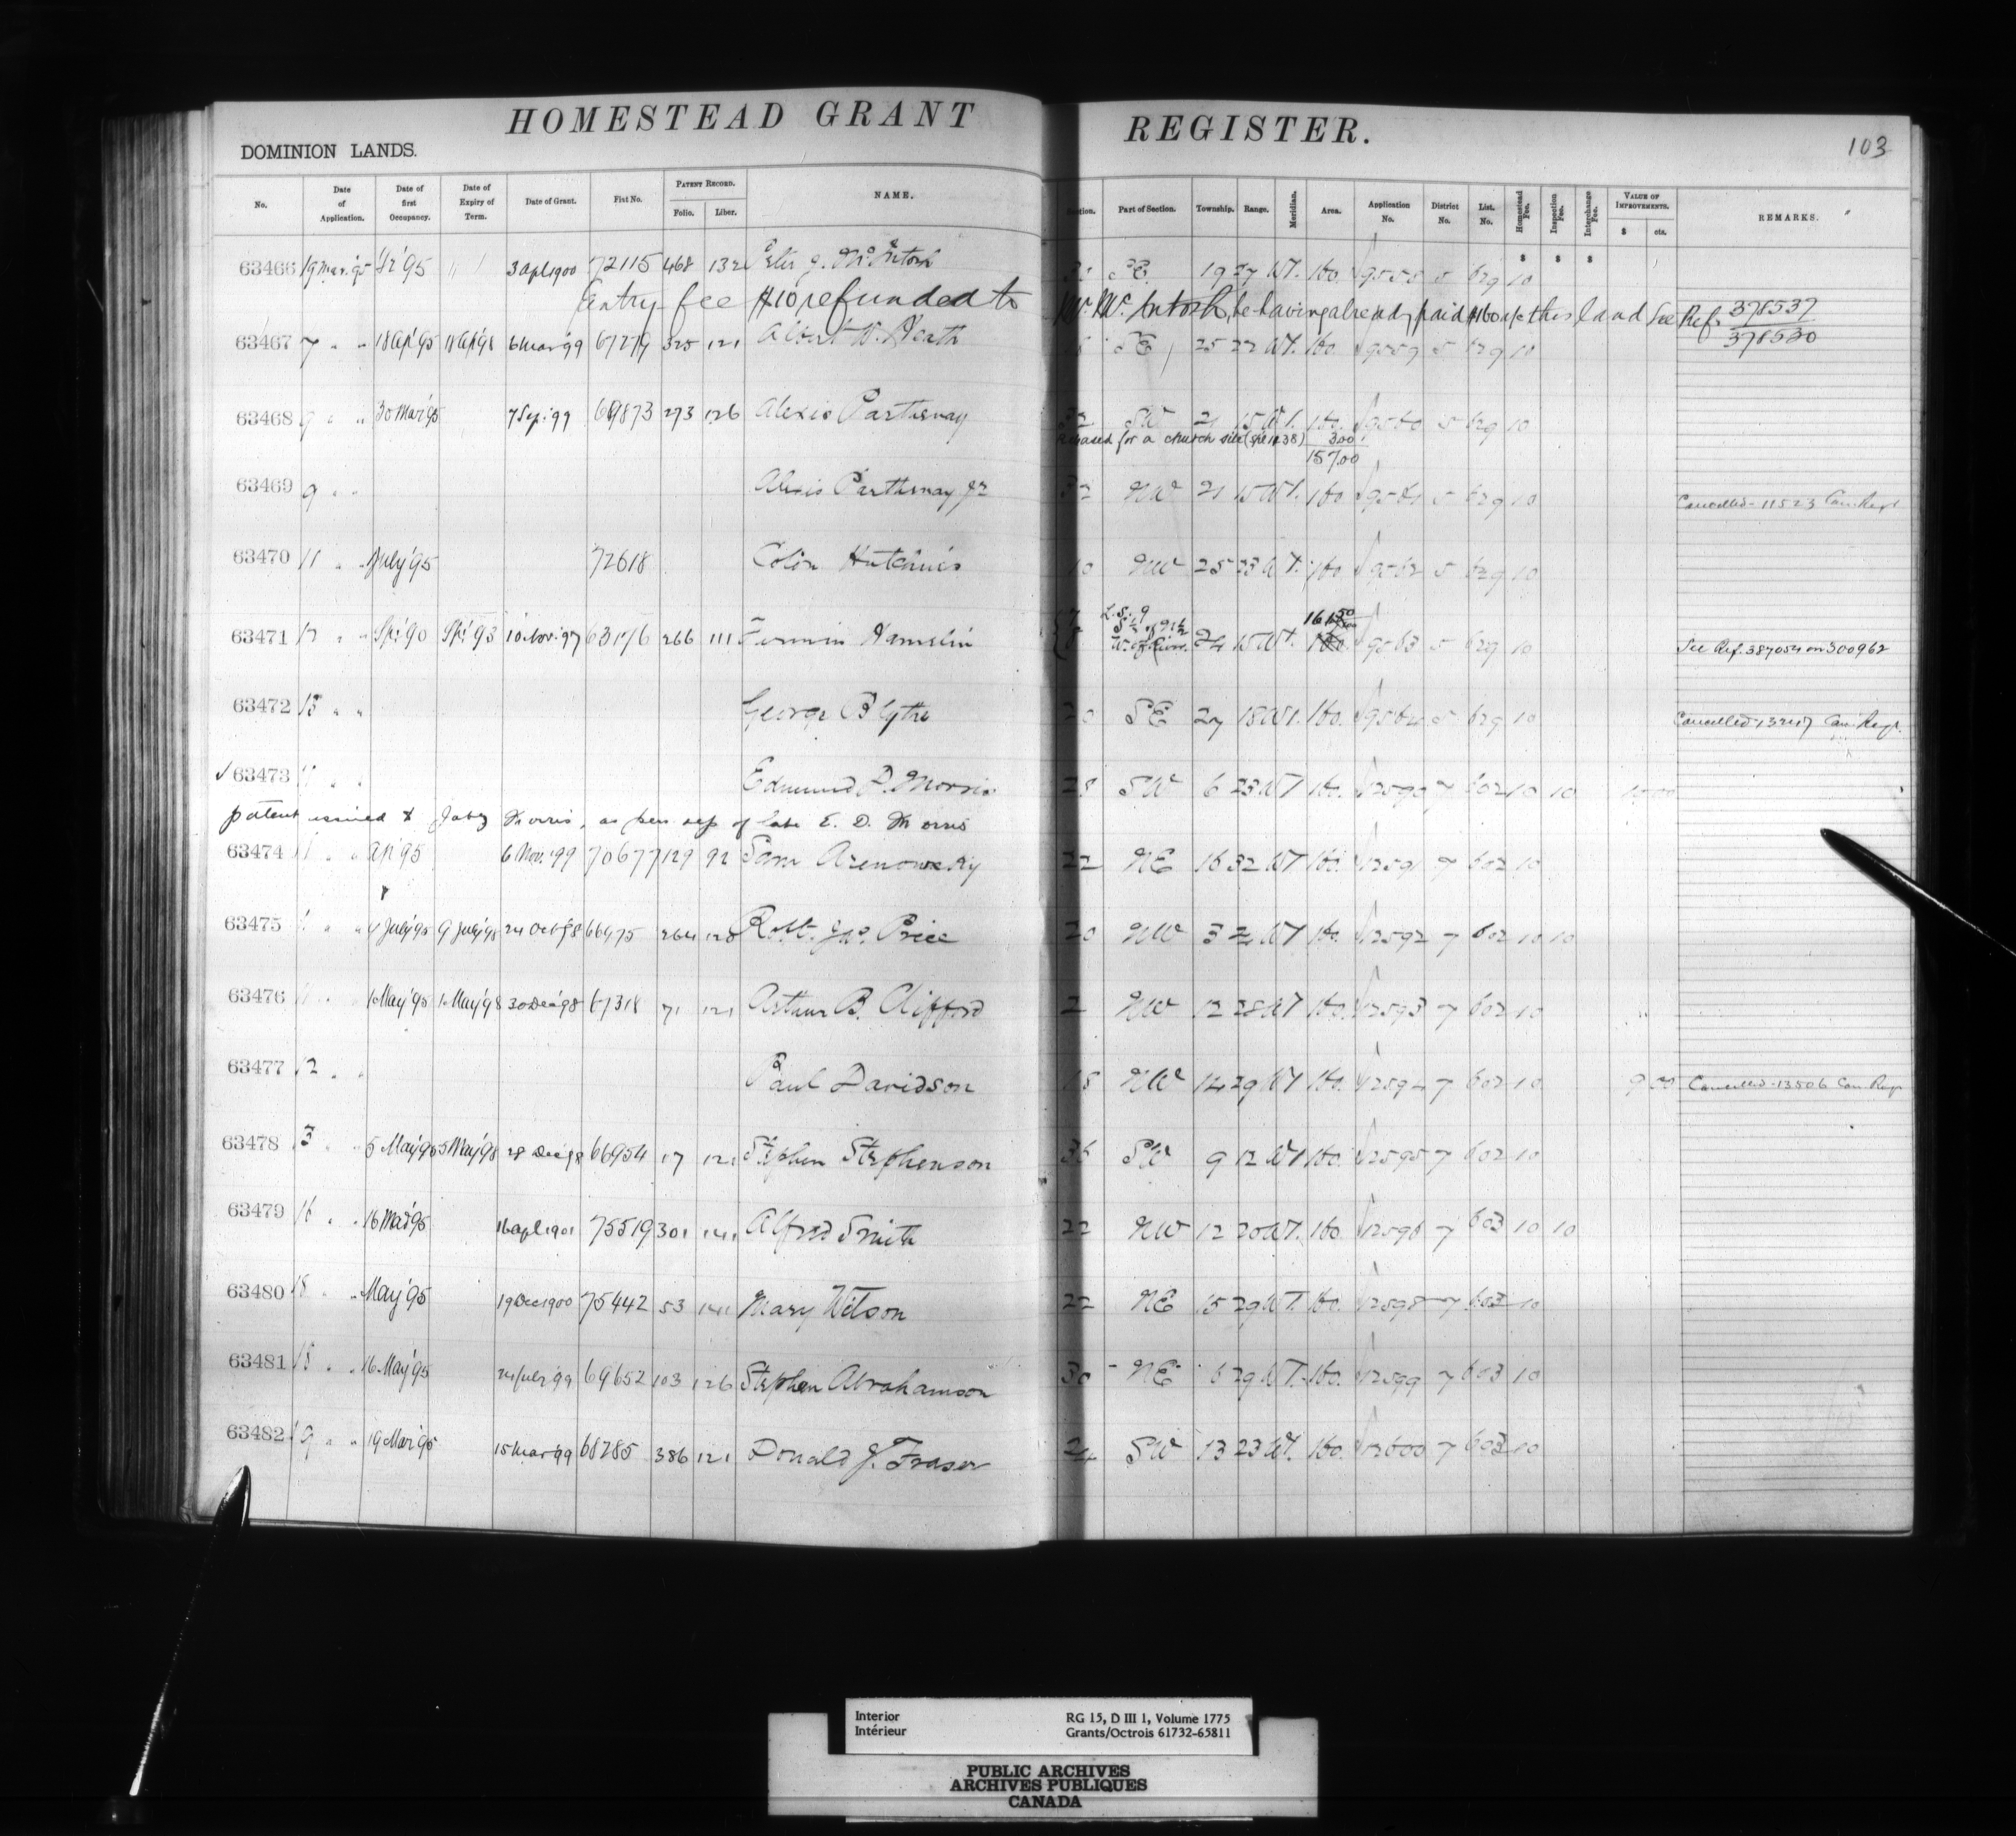 HOMESTEAD GRANT REGISTER.
103
DOMINION LANDS.
No. Date of Application. Date of first Occupancy. Date of Expiry of Term. Date of Grant. Fist No. PATENT RECORD. Folio. Liber. NAME. Section. Part of Section. Township. Range. Meridian. Area. Application No. District No. List. No. Homestead Fee. Inspection Fee. Interchange Fee. VALUE OF IMPROVEMENTS. $ cts. REMARKS.
$ $ $
63466 19 Mar. '95 '95 3 Apl 1900 72115 468 132 Peter J. McIntosh SE 19 27 W1. 160. 9558 5 629 10
Entry fee $10 refunded to Mr. McIntosh, he having already paid $160 a/c this land See Ref. 378537
378530
63467 7 " " 18 Ap '95 18 Ap '98 6 Mar '99 67279 325 121 Albert W. Heath SE 25 22 W1. 160. 9559 5 629 10
63468 9 " " 30 Mar '95 7 Sep. '99 69873 293 126 Alexis Parthenay 32 SW 21 15 W1. 160. 9560 5 629 10
Released for a church site 3.00
157.00
63469 9 " " Alexis Parthenay Jr 32 NW 21 15 W1. 160 9561 5 629 10 Cancelled - 11523 Can. Regr
63470 11 " " July '95 72618 Colin Hutchins 10 NW 25 23 W1. 160 9562 5 629 10
63471 12 " " Sp. '90 Sp. '93 10 Nov. '97 63176 266 111 Firmin Hamelin L.S. 9 24 15 W1. 160. 9563 5 629 10 See Ref. 387054 on 300962
63472 13 " " George Blythe 20 SE 27 18 W1. 160. 9564 5 629 10 Cancelled Can. Regr.
✓ 63473 11 " " Edmund D. Morris 28 SW 6 23 W1 160. 12590 7 602 10 10
patent issued to Jabez Morris, as per rep of late E. D. Morris
63474 11 " " Ap '95 6 Nov. '99 70677 129 92 Sam Arenowsky 22 NE 16 32 W1 160. 12591 7 602 10
63475 11 " " 4 July '95 9 July '98 24 Oct '98 66475 264 120 Robt. Jno. Price 20 NW 3 21 W1 160. 12592 7 602 10 10
63476 11 " " 1 May '95 1 May '98 30 Dec '98 67318 71 121 Arthur B. Clifford 2 NW 12 28 W1 160. 12593 7 602 10
63477 12 " " Paul Davidson 18 NW 14 29 W1 160. 12594 7 602 10 9 00 Cancelled - 13506 Can. Regr
63478 13 " " 5 May '95 5 May '98 28 Dec '98 66954 17 121 Stephen Stephenson 36 SW 9 12 W1 160. 12595 7 602 10
63479 16 " " 16 Mar '95 16 Apl 1901 75519 301 141 Alfred Smith 22 NW 12 20 W1. 160. 12596 7 603 10 10
63480 18 " " May '95 19 Dec 1900 75442 53 141 Mary Wilson 22 NE 15 29 W1. 160. 12598 7 603 10
63481 18 " " 16 May '95 24 July '99 69652 103 126 Stephen Abrahamson 30 NE 6 29 W1. 160. 12599 7 603 10
63482 19 " " 19 Mar '95 15 Mar '99 68285 386 121 Donald J. Fraser 24 SW 13 23 W1. 160. 12600 7 603 10
Interior
Intérieur
RG 15, D III 1, Volume 1775
Grants/Octrois 61732-65811
PUBLIC ARCHIVES
ARCHIVES PUBLIQUES
CANADA